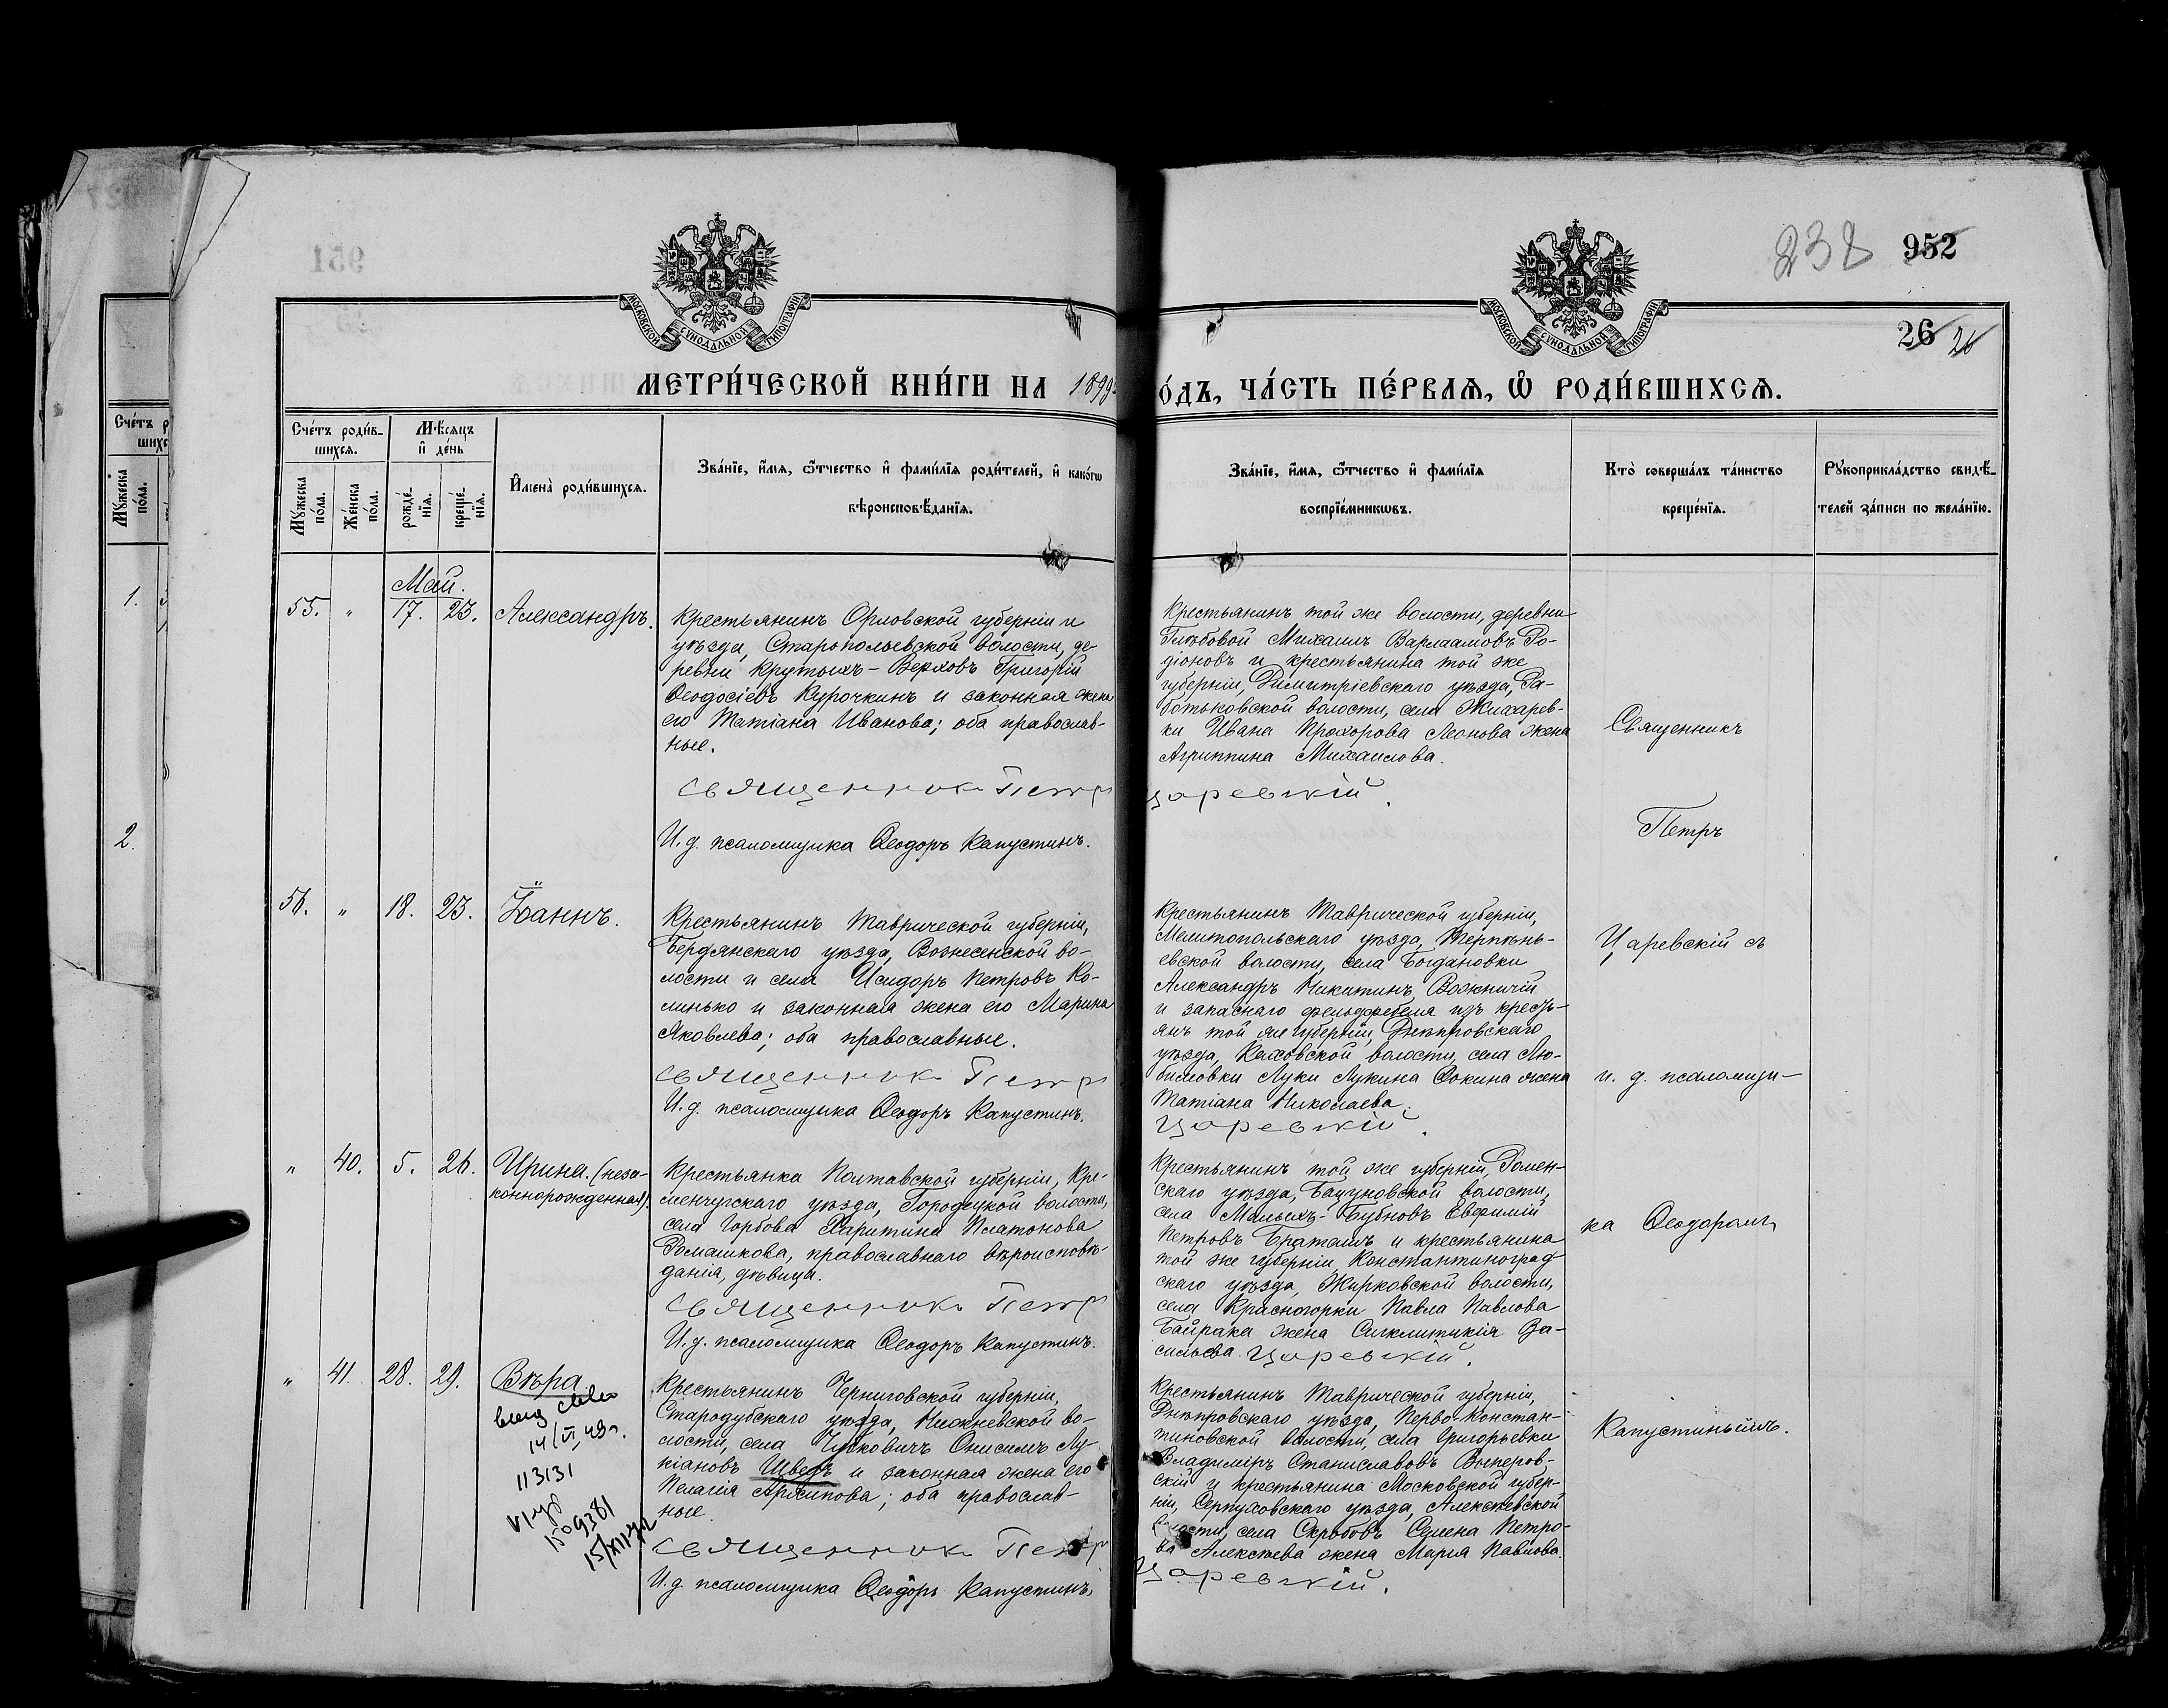 952
238
26 26
МОСКОВСКОЙ СУНОДАЛЬНОЙ ТИПОГРАФІИ
МОСКОВСКОЙ СУНОДАЛЬНОЙ ТИПОГРАФІИ
МЕТРИ́ЧЕСКОЙ КНИ́ГИ НА 1899
О́ДЪ, ЧА́СТЬ ПЕ́РВАѦ, Ѽ РОДИ́ВШИХСѦ.
Сче́тъ роди́в-
шихсѧ.
Мѣ́сяцъ
и де́нь
Му́жеска
по́ла.
Же́нска
по́ла.
рожде́-
нїѧ.
креще́-
нїѧ.
И҆мена̀ роди́вшихсѧ.
Зва́нїе, и҆́мѧ, ѻ҆́тчество и҆ фами́лїѧ роди́телей, и҆ како́гѡ
вѣроисповѣ́данїѧ.
Зва́нїе, и҆́мѧ, ѻ҆́тчество и҆ фами́лїѧ
воспрїе́мникѡвъ.
Кто̀ соверша́лъ та́инство
креще́нїѧ.
Рꙋкоприкла́дство свидѣ́-
телей за́писи по жела́нїю.
Май.
55. " 17. 23. Александръ.
Крестьянинъ Орловской губерніи и
уѣзда, Старопольевской волости, де-
ревни Крутыхъ-Верховъ Григорій
Ѳеодосіевъ Курочкинъ и законная жена
его Татіана Иванова; оба православ-
ные.
Священникъ Петръ
И. д. псаломщика Ѳеодоръ Капустинъ.
Крестьянинъ той же волости, деревни
Глѣбовой Михаилъ Варлаамовъ Ро-
діоновъ и крестьянина той же
губерніи, Димитріевскаго уѣзда, Ра-
ботьковской волости, села Жихарев-
ки Ивана Прохорова Леонова жена
Агриппина Михаилова.
Царевскій.
Священникъ
Петръ
Царевскій съ
и. д. псаломщи-
ка Ѳеодоромъ
Капустинымъ.
56. " 18. 23. Іоаннъ.
Крестьянинъ Таврической губерніи,
Бердянскаго уѣзда, Вознесенской во-
лости и села Исидоръ Петровъ Ко-
линько и законная жена его Марина
Яковлева; оба православные.
Священникъ Петръ
И. д. псаломщика Ѳеодоръ Капустинъ.
Крестьянинъ Таврической губерніи,
Мелитопольскаго уѣзда, Терпѣнь-
евской волости, села Богдановки
Александръ Никитинъ
и запаснаго фельдфебеля изъ кресть-
янъ той же губерніи, Днѣпровскаго
уѣзда, Каховской волости, села Лю-
бимовки Луки Лукина Фокина жена
Татіана Николаева.
Царевскій.
" 40. 5. 26. Ирина. (неза-
коннорожденная).
Крестьянка Полтавской губерніи, Кре-
менчугскаго уѣзда, Городецкой волости,
села Горбова Харитина Платонова
Ромашкова, православнаго вѣроисповѣ-
данія, дѣвица.
Священникъ Петръ
И. д. псаломщика Ѳеодоръ Капустинъ.
Крестьянинъ той же губерніи, Ромен-
скаго уѣзда, волости,
села Малыхъ-Бубновъ Евфимій
Петровъ и крестьянина
той же губерніи, Константиноград
скаго уѣзда, Жирковской волости,
села Красногорки Павла Павлова
Байрака жена Сигклитикія Ва-
сильева. Царевскій.
" 41. 28. 29. Вѣра.
14/VI 49г.
113131
1509381
Крестьянинъ Черниговской губерніи,
Стародубскаго уѣзда, во-
лости, села Чубковичъ Онисимъ Лу-
кіановъ Шведъ и законная жена его
Пелагія Архипова; оба православ-
ные.
Священникъ Петръ
И. д. псаломщика Ѳеодоръ Капустинъ.
Крестьянинъ Таврической губерніи,
Днѣпровскаго уѣзда, Перво-Констан-
тиновской волости, села Григорьевки
Владиміръ Станиславовъ
скій и крестьянина Московской губер-
ніи, Серпуховскаго уѣзда, Алексѣевской
волости, села Скробовъ Семена Петро-
ва Алексѣева жена Марія Павлова.
Царевскій.
Сче́тъ р
шихс
Му́жеска
по́ла.
1.
2.